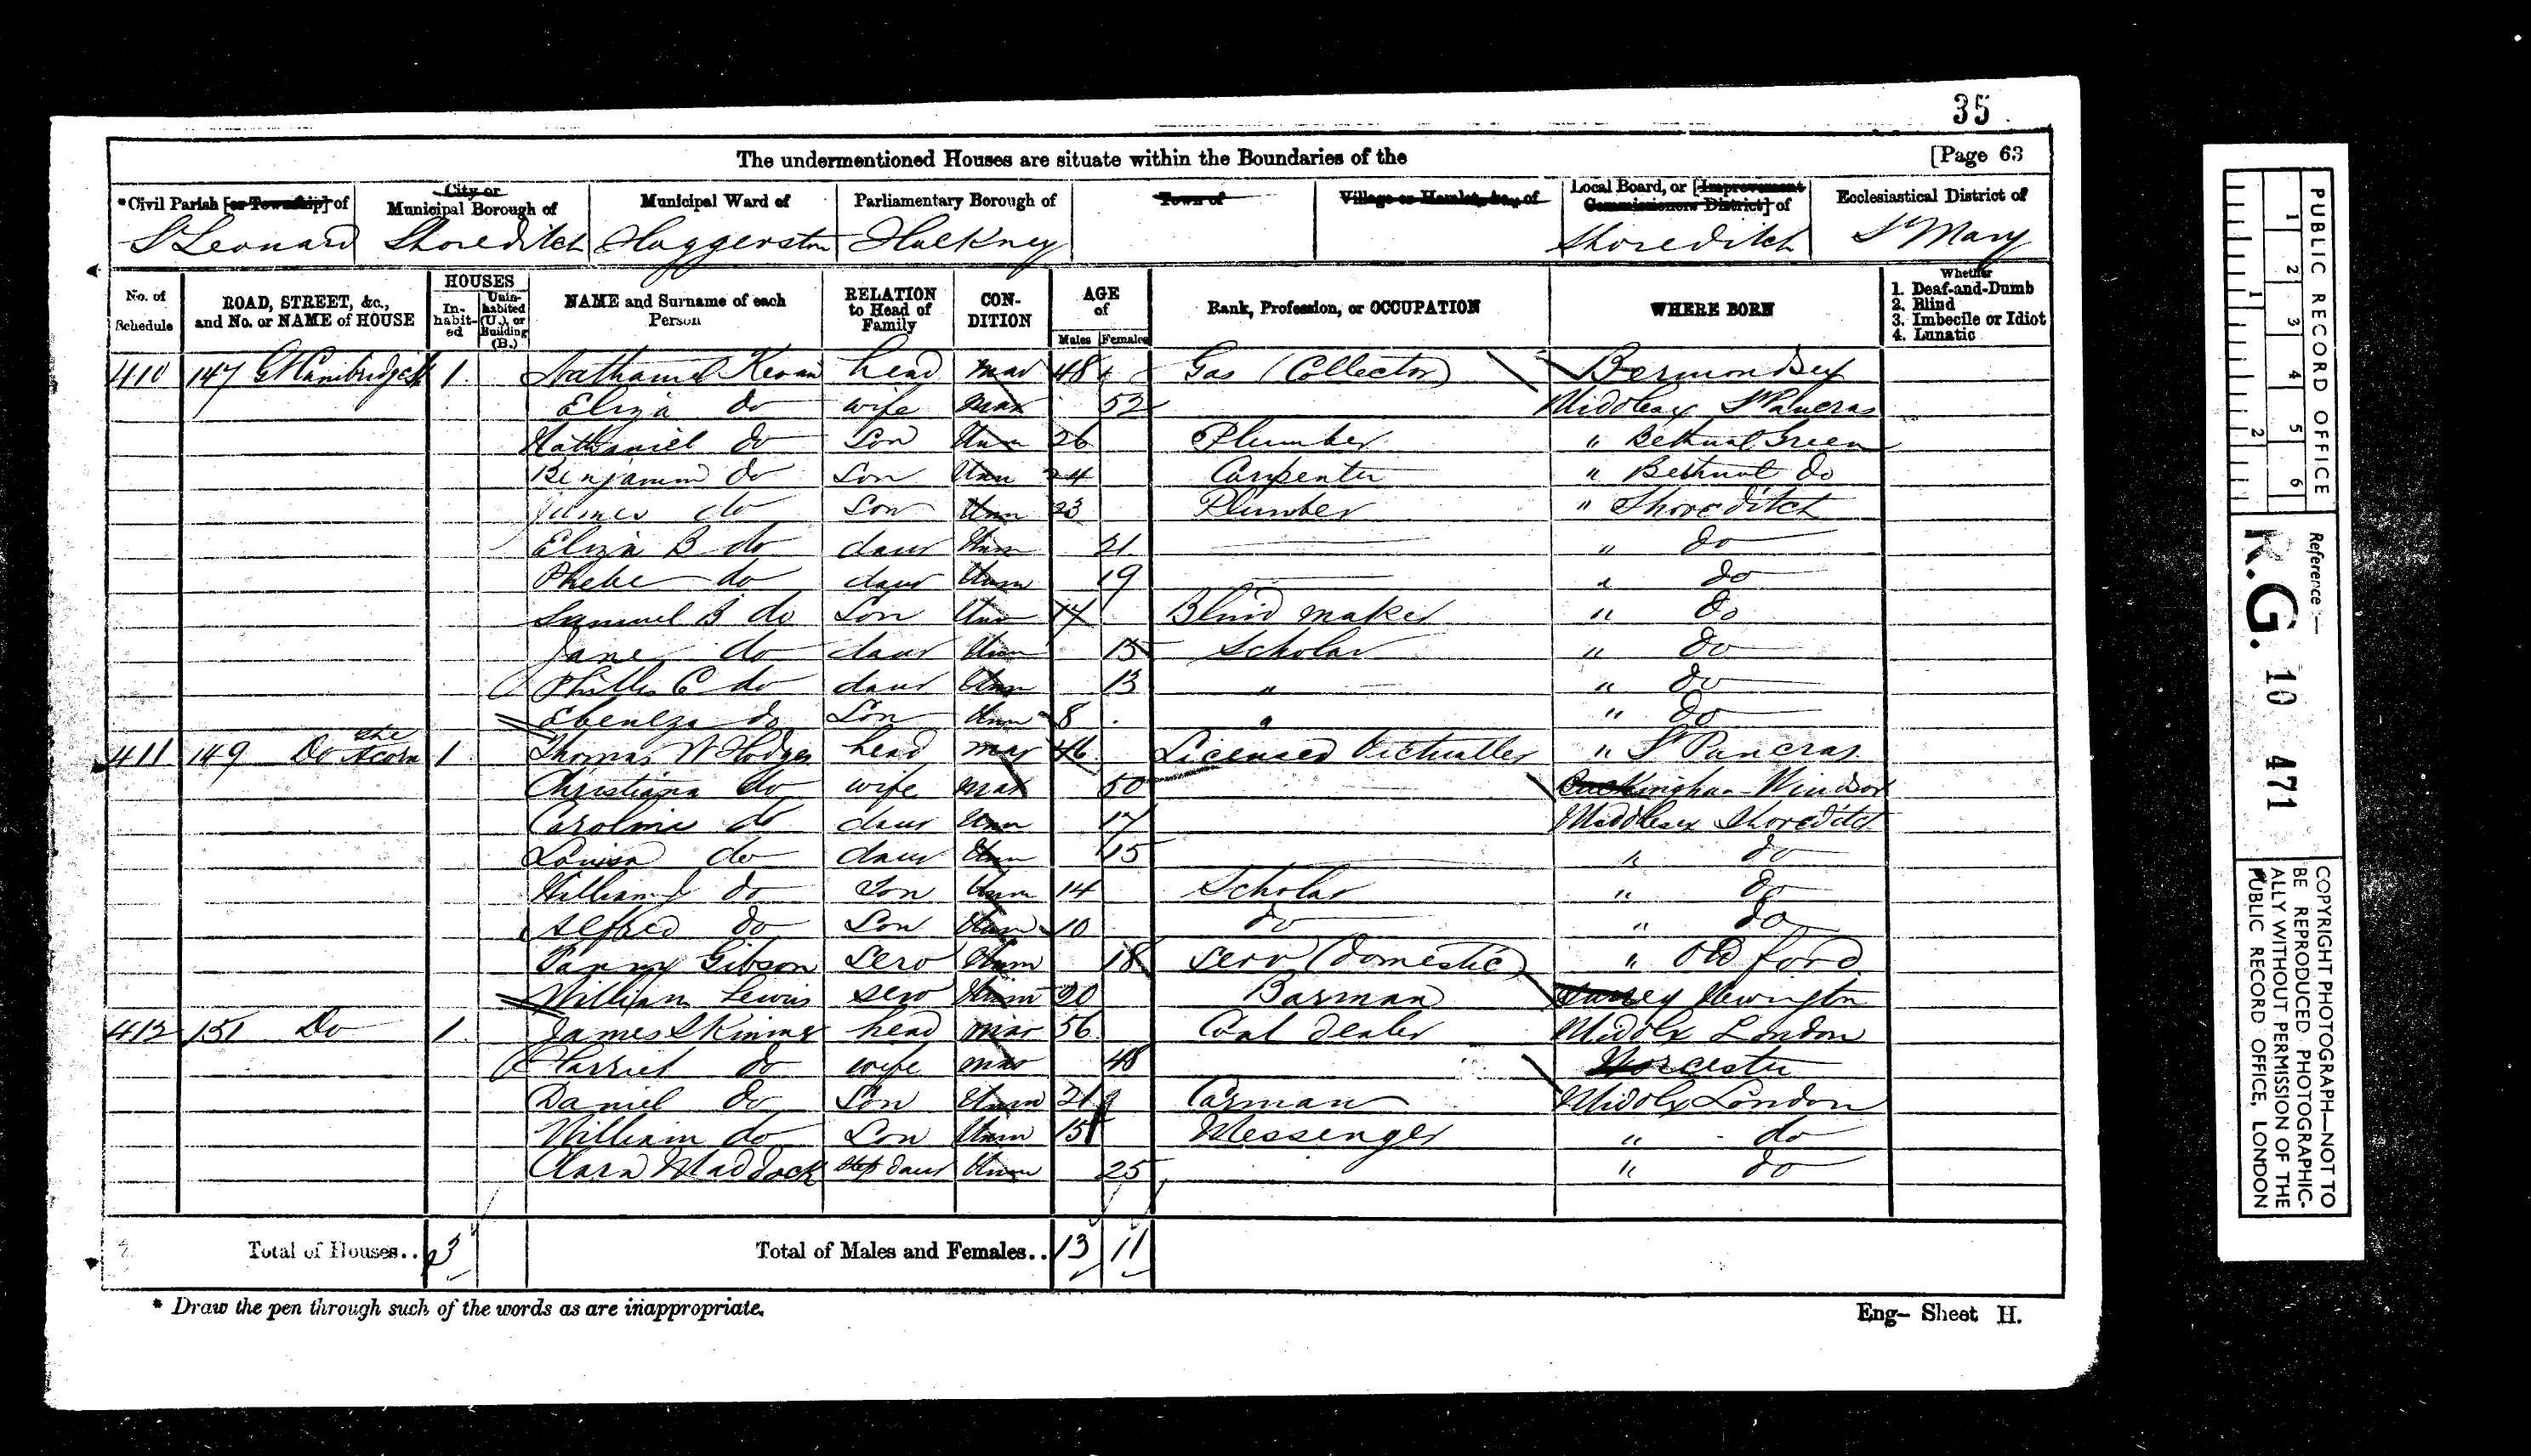 35
The undermentioned Houses are situate within the Boundaries of the [Page 63
*Civil Parish [or Township] of City or Municipal Borough of Municipal Ward of Parliamentary Borough of Town of Village or Hamlet, &c., of Local Board, or [Improvement Commissioners District] of Ecclesiastical District of
St Leonard Shoreditch Haggerston Hackney Shoreditch St Mary
No. of Schedule ROAD, STREET, &c., and No. or NAME of HOUSE HOUSES Inhabited Uninhabited (U.), or Building (B.) NAME and Surname of each Person RELATION to Head of Family CONDITION AGE of Males Females Rank, Profession, or OCCUPATION WHERE BORN Whether 1. Deaf-and-Dumb 2. Blind 3. Imbecile or Idiot 4. Lunatic
410 147 Gt Cambridge St 1 Nathaniel head mar 48 Gas (Collector) Bermondsey
Eliza do wife mar 52 Middlesex St Pancras
Nathaniel do Son Unm 26 Plumber " Bethnal Green
Benjamin do Son Unm 24 Carpenter " Bethnal do
James do Son Unm 23 Plumber " Shoreditch
Eliza B do daur Unm 21 " do
Phebe do daur Unm 19 " do
Samuel B do Son Unm 17 Blind maker " do
Jane do daur Unm 15 Scholar " do
Phillis C do daur Unm 13 " " do
Ebenezar do Son Unm 8 " " do
411 149 Do the Acorn 1 Thomas W Hodges head mar 46 Licensed Victualler " St Pancras
Christiana do wife mar 50 Buckingham Windsor
Caroline do daur Unm 17 Middlesex Shoreditch
Louisa do daur Unm 15 " do
William J do Son Unm 14 Scholar " do
Alfred do Son Unm 10 do " do
Fanny Gibson Serv Unm 18 Serv (Domestic) " Old Ford
William Lewis serv Unm 20 Barman Surrey Newington
412 151 Do 1 James Skinner head mar 56 Coal dealer Middlx London
Harriet do wife mar 48 Worcester
Daniel do Son Unm 21 Carman Middlx London
William do Son Unm 15 Messenger " do
Clara Maddock Step daur Unm 25 " do
Total of Houses.. 3 Total of Males and Females.. 13 11
* Draw the pen through such of the words as are inappropriate.
Eng- Sheet H.
PUBLIC RECORD OFFICE
1 2 3 4 5 6
1 2
Reference :—
R.G. 10 471
COPYRIGHT PHOTOGRAPH—NOT TO
BE REPRODUCED PHOTOGRAPHIC-
ALLY WITHOUT PERMISSION OF THE
PUBLIC RECORD OFFICE, LONDON